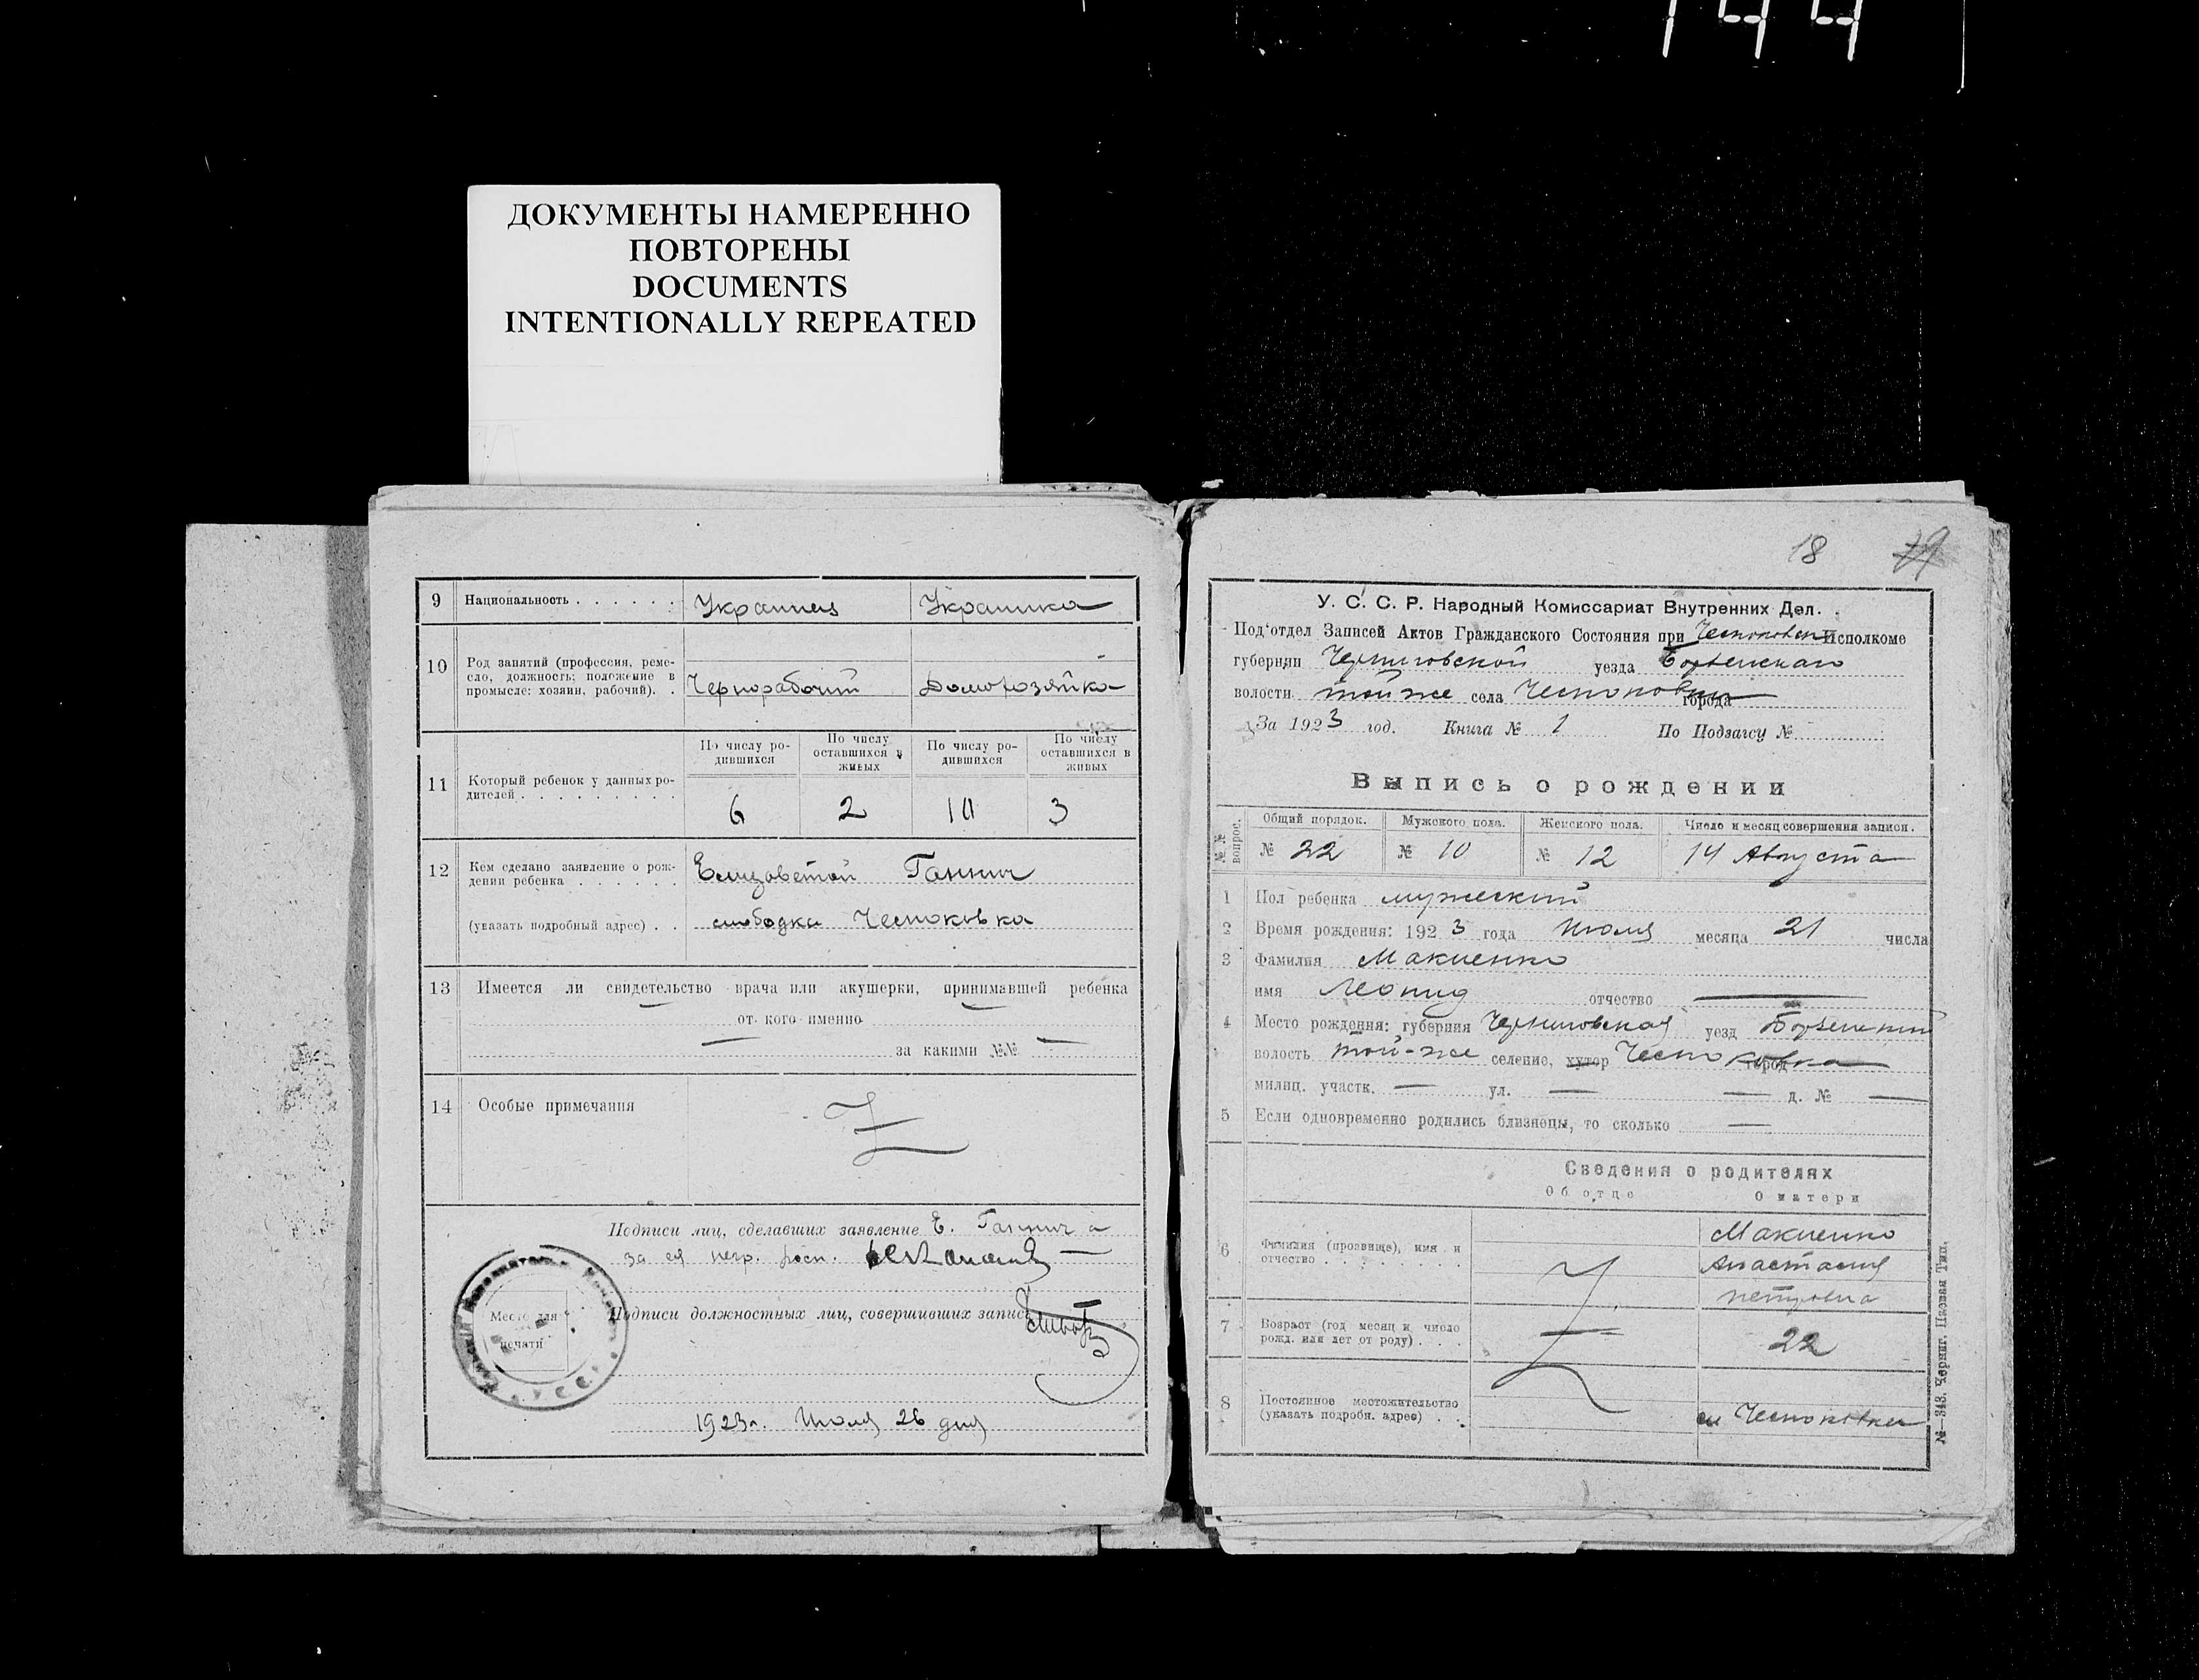 144
ДОКУМЕНТЫ НАМЕРЕННО
ПОВТОРЕНЫ
DOCUMENTS
INTENTIONALLY REPEATED
9 Национальность Украинец Украинка
10 Род занятий (профессия, реме-
сло, должность: положение в
промысле: хозяин, рабочий). Чернорабочий Домохозяйка
По числу ро-
дившихся
По числу
оставшихся в
живых
По числу ро-
дившихся
По числу
оставшихся в
живых
11 Который ребенок у данных ро-
дителей 6 2 10 3
12 Кем сделано заявление о рож-
дении ребенка Елизаветой Ганнич
(указать подробный адрес) слободка Чесноковка
13 Имеется ли свидетельство врача или акушерки, принимавшей ребенка
от кого именно
за какими №№
14 Особые примечания
Подписи лиц, сделавших заявление Е. Ганнич а
за ея негр. росп.
Место для
печати
Подписи должностных лиц, совершивших запись
1923 г. Июля 26 дня
18 19
У. С. С. Р. Народный Комиссариат Внутренних Дел.
Под'отдел Записей Актов Гражданского Состояния при Чесноковск Исполкоме
губернии Черниговской уезда Борзенскаго
волости той же села Чесноковки города
За 1923 год. Книга № 1 По Подзагсу №
Выпись о рождении
№№ вопрос.
Общий порядок. Мужского пола. Женского пола. Число и месяц совершения записи.
№ 22 № 10 № 12 14 Августа
1 Пол ребенка мужеский
2 Время рождения: 1923 года Июля месяца 21 числа
3 Фамилия Макиенко
имя Леонид отчество —
4 Место рождения: губерния Черниговская уезд Борзенский
волость той-же селение, хутор Чесноковка город
милиц. участк. — ул. — — д. № —
5 Если одновременно родились близнецы, то сколько —
Сведения о родителях
Об отце О матери
6 Фамилия (прозвище), имя и
отчество Макиенко
Анастасия
Петровна
7 Возраст (год месяц и число
рожд. или лет от роду) 22
8 Постоянное местожительство
(указать подробн. адрес) сл Чесноковка
№—343. Черниг. Центр. Тип.